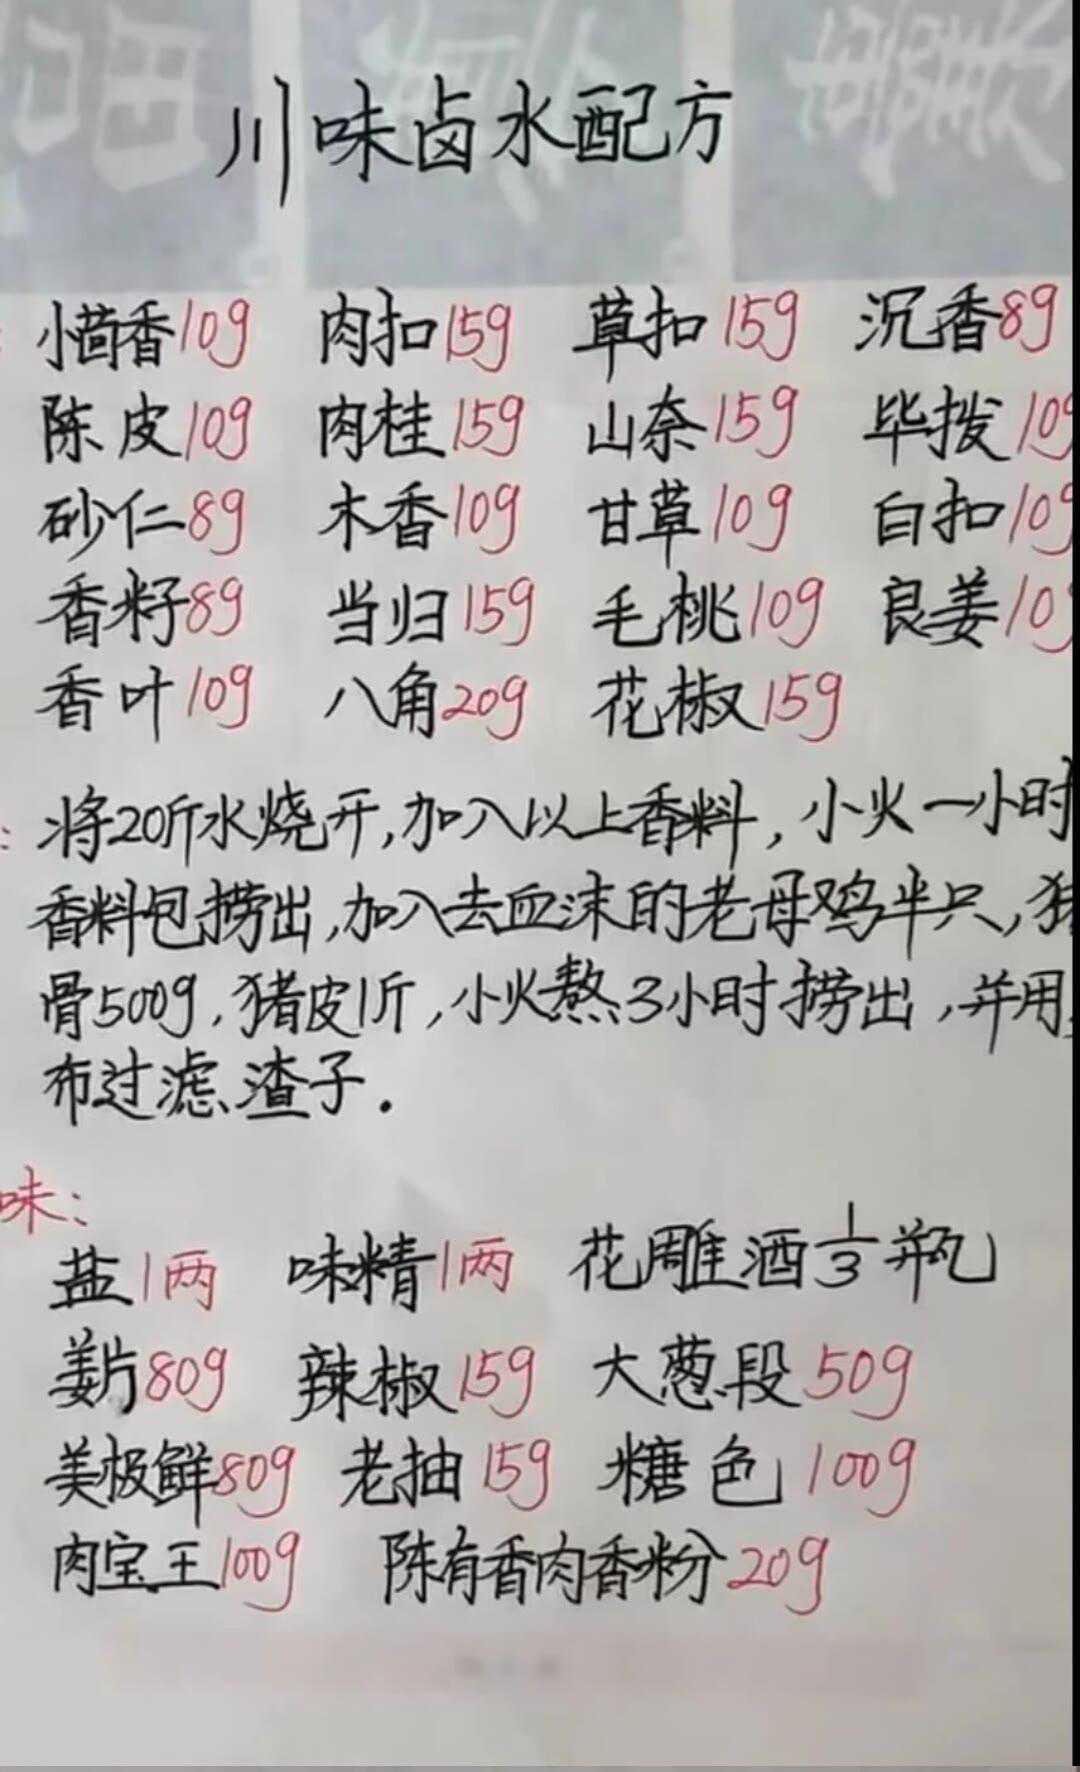 川味卤水配方
小茴香10g 肉扣15g 草扣15g 沉香8g
陈皮10g 肉桂15g 山奈15g 毕拨10g
砂仁8g 木香10g 甘草10g 白扣10g
香籽8g 当归15g 毛桃10g 良姜10g
香叶10g 八角20g 花椒15g
将20斤水烧开,加入以上香料,小火一小时
香料包捞出,加入去血沫的老母鸡半只,猪
骨500g,猪皮1斤,小火熬3小时捞出,并用
布过滤渣子.
味:
盐1两 味精1两 花雕酒1/3瓶
姜片80g 辣椒15g 大葱段50g
美极鲜80g 老抽15g 糖色100g
肉宝王100g 陈有香肉香粉20g